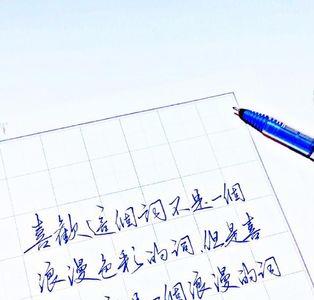 喜歡這個詞不是一個
浪漫色彩的詞,但是喜
是一個浪漫的詞